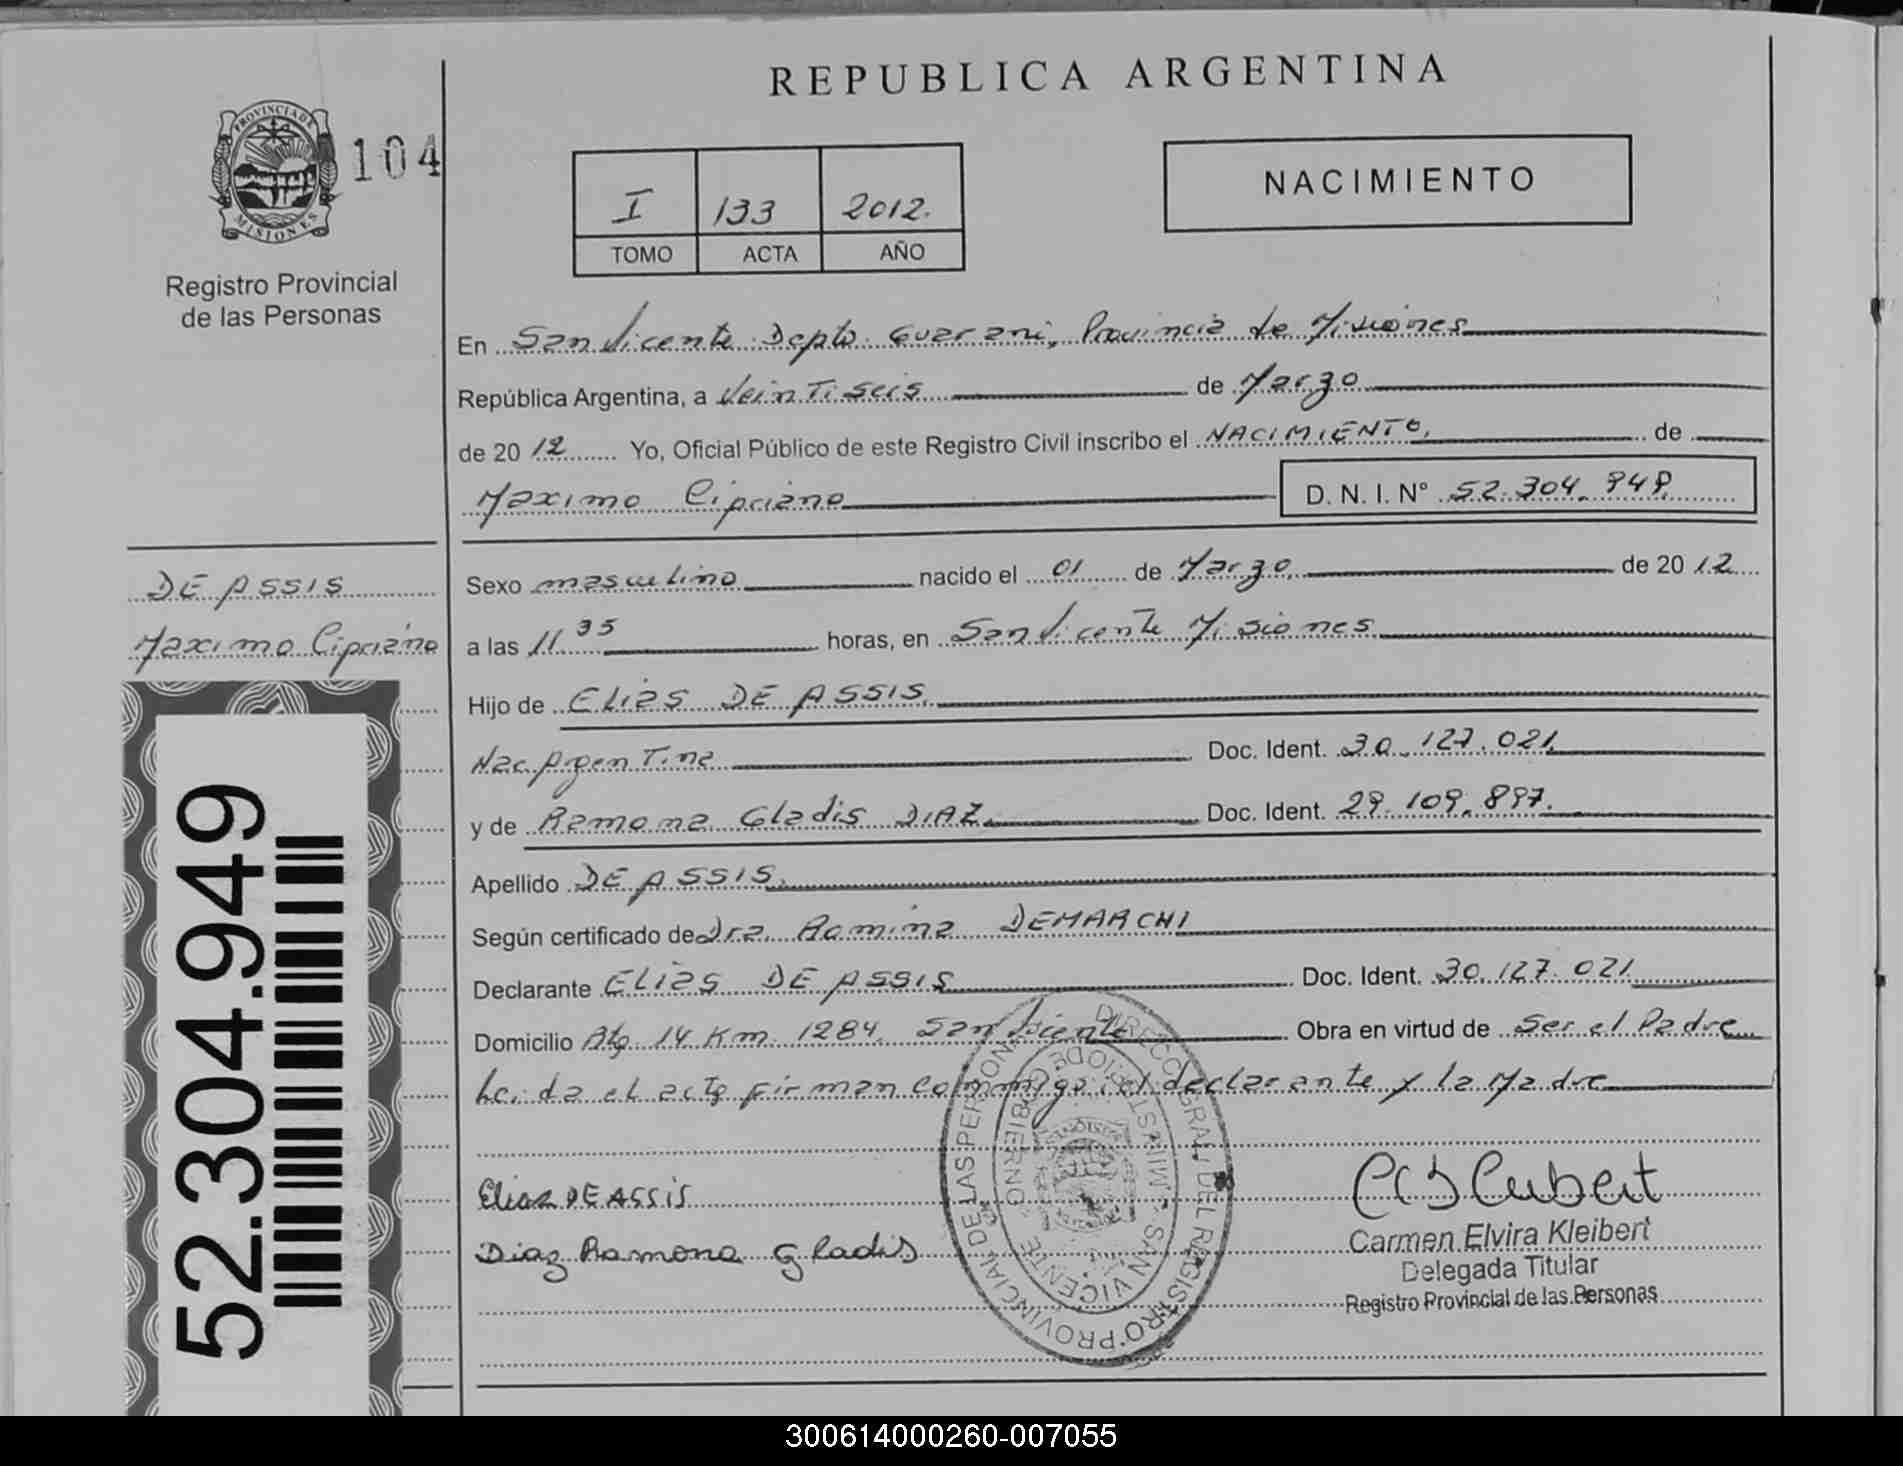 REPUBLICA ARGENTINA
PROVINCIA DE
MISIONES
104
Registro Provincial
de las Personas
I 133 2012.
TOMO ACTA AÑO
NACIMIENTO
En San Vicente Depto Guarani, Provincia de Misiones
República Argentina, a VeinTiseis de Marzo
de 20 12 Yo, Oficial Público de este Registro Civil inscribo el NACIMIENTO, de
Maximo Cipriano D. N. I. N° 52.304.949
DE ASSIS
Maximo Cipriano
Sexo masculino nacido el 01 de Marzo de 20 12
a las 11 35 horas, en San Vicente Misiones
Hijo de Elias DE ASSIS.
Nac ArgenTina Doc. Ident. 30.127.021
y de Ramona Gladis DIAZ. Doc. Ident. 29.109.897.
Apellido DE ASSIS.
Según certificado de Dra. Romina DEMARCHI
Declarante Elias DE ASSIS Doc. Ident. 30.127.021
Domicilio Rta 14 Km. 1284. San Vicente Obra en virtud de Ser el Padre
Leida el acta firman conmigo el declarante y la Madre
Elias DE ASSIS
Diaz Ramona Gladis
Carmen Elvira Kleibert
Delegada Titular
Registro Provincial de las Personas
DIRECCION GRAL. DEL REGISTRO PROVINCIAL DE LAS PERSONAS
MINISTERIO DE GOBIERNO
SAN VICENTE
52.304.949
300614000260-007055